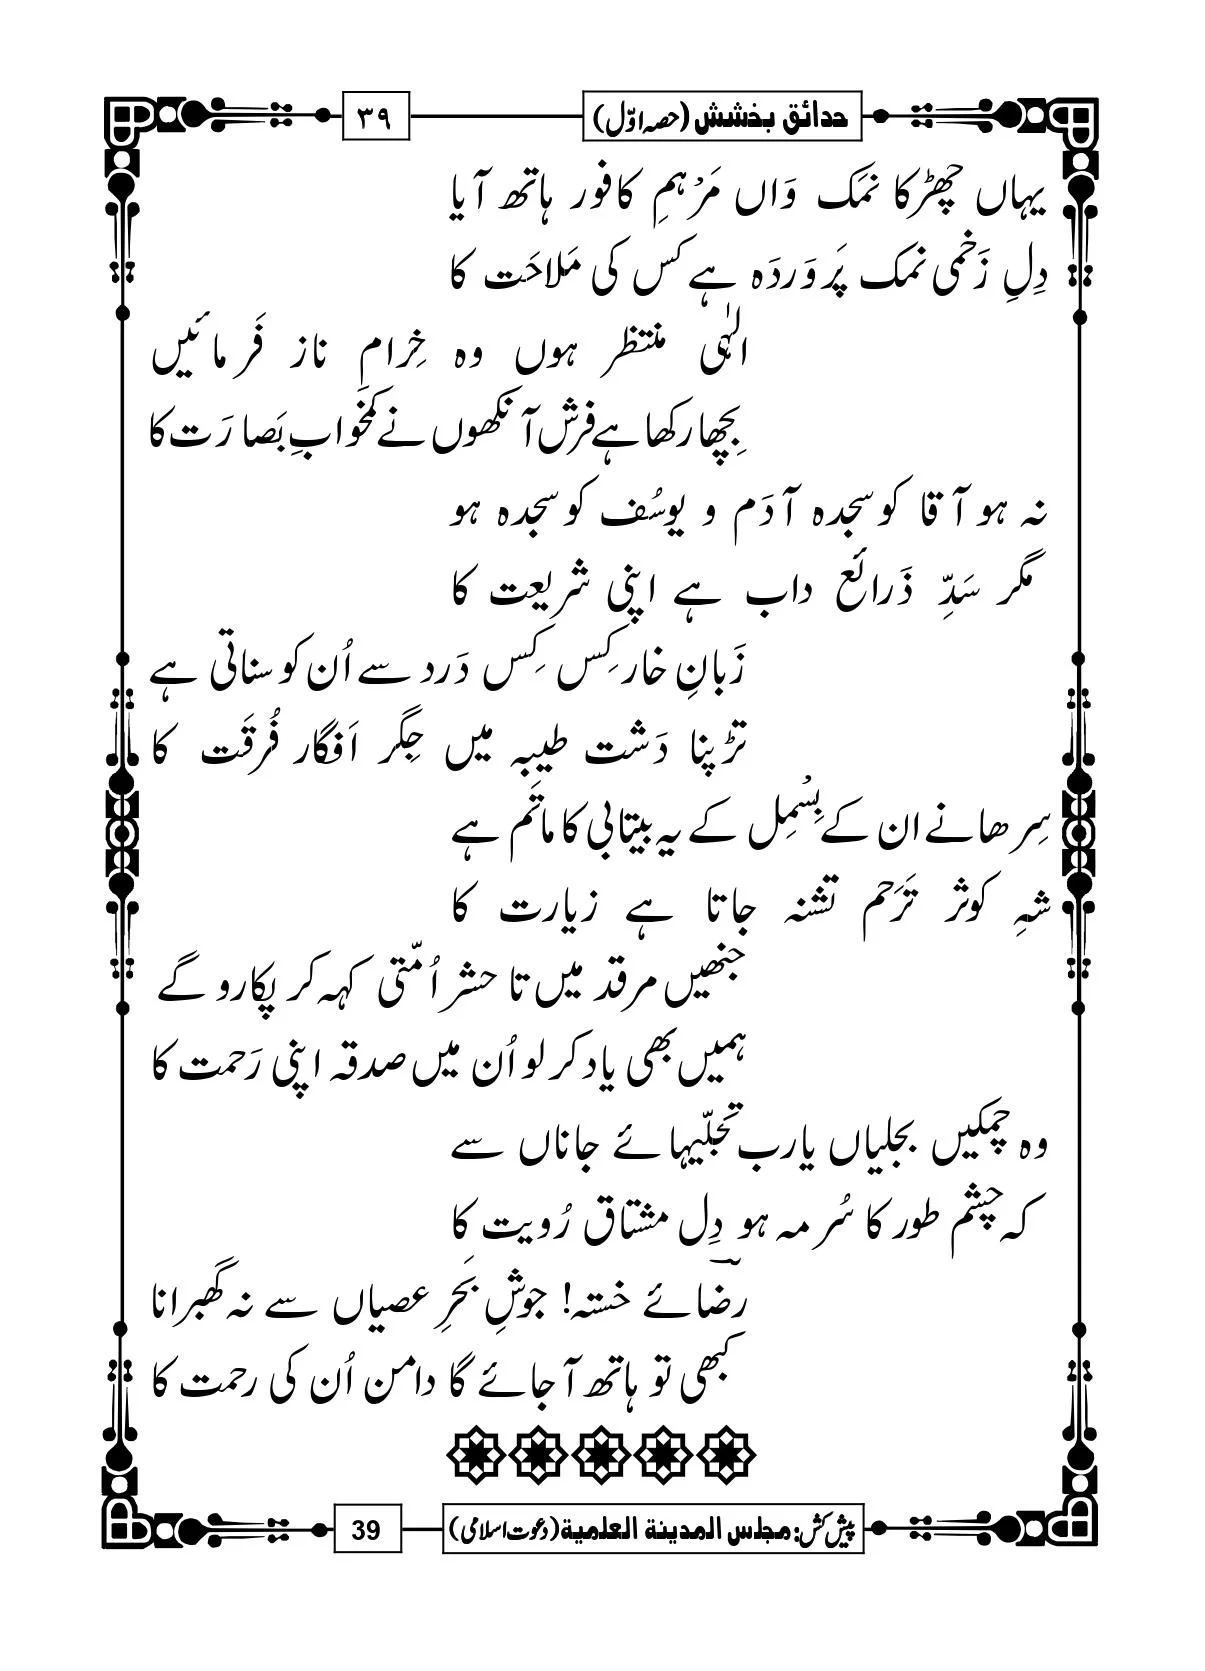 حدائق بخشش (حصہ اوّل) ٣٩
یہاں چھڑکا نمک وَاں مَرْہمِ کافور ہاتھ آیا
دِلِ زَخمی نمک پَروَردَہ ہے کس کی مَلاحَت کا
الٰہی منتظر ہوں وہ خِرامِ ناز فَرمائیں
بِچھا رکھا ہے فرش آنکھوں نے کمخوابِ بَصارَت کا
نہ ہو آقا کو سجدہ آدَم و یوسُف کو سجدہ ہو
مگر سَدِّ ذَرائع داب ہے اپنی شریعت کا
زَبانِ خار کِس کِس دَرد سے اُن کو سناتی ہے
تڑپنا دَشت طیبہ میں جِگر اَفگار فُرقَت کا
سِرھانے ان کے بِسْمِل کے یہ بیتابی کا ماتَم ہے
شہِ کوثر تَرَحم تشنہ جاتا ہے زیارت کا
جنھیں مرقد میں تا حشر اُمّتی کہہ کر پکارو گے
ہمیں بھی یاد کر لو اُن میں صدقہ اپنی رَحمت کا
وہ چمکیں بجلیاں یارب تَجلّیہائے جاناں سے
کہ چشم طور کا سُرمہ ہو دِل مشتاق رُویت کا
رضائے خستہ! جوشِ بَحرِ عصیاں سے نہ گھبرانا
کبھی تو ہاتھ آجائے گا دامن اُن کی رحمت کا
پیش کش: مجلس المدینة العلمیة (دعوت اسلامی) 39